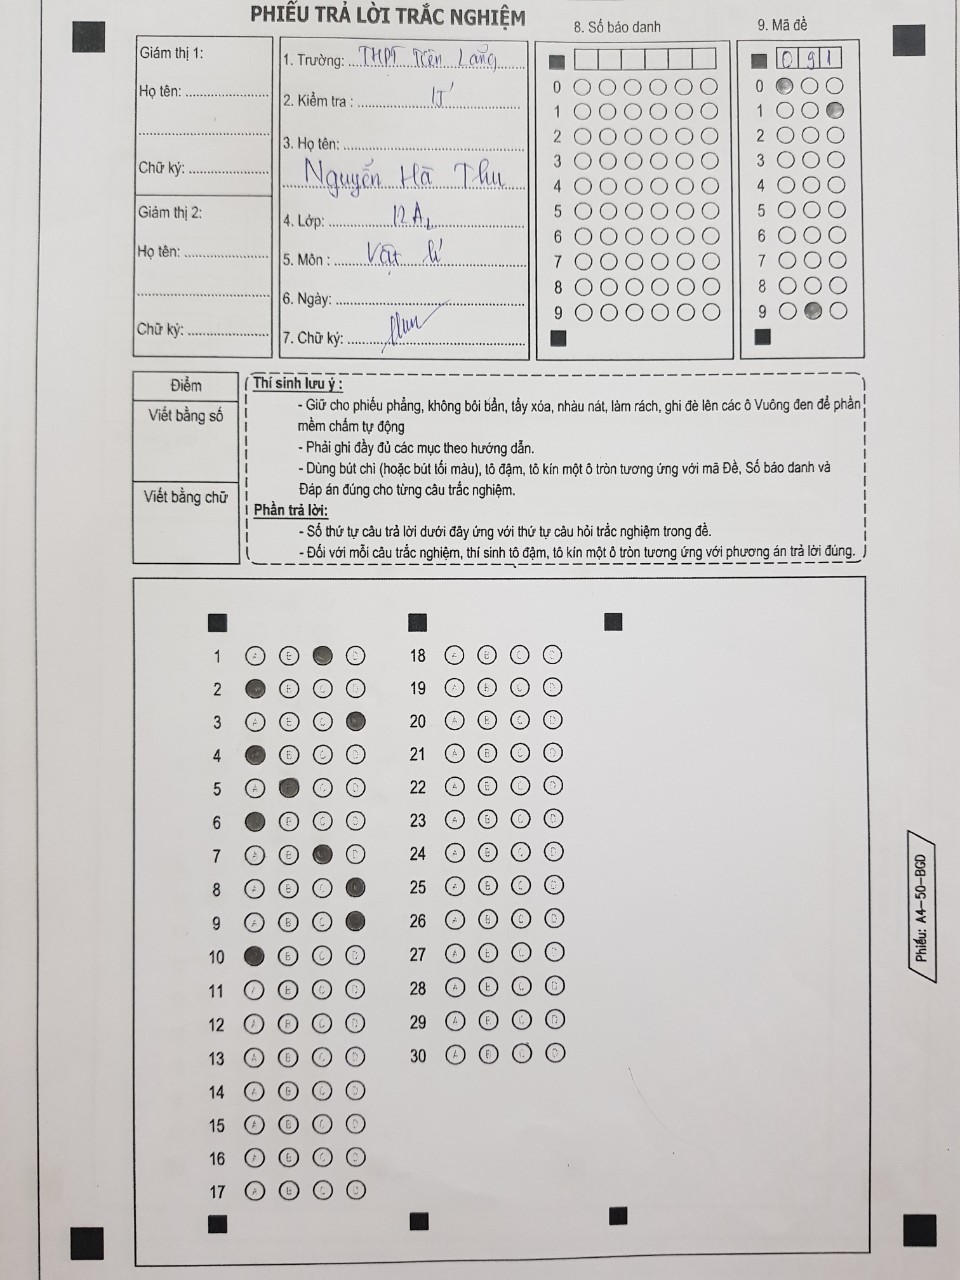 PHIẾU TRẢ LỜI TRẮC NGHIỆM
Giám thị 1:
Họ tên: ..................
Chữ ký: ..................
Giám thị 2:
Họ tên: ..................
Chữ ký: ..................
1. Trường: THPT Tiên Lãng
2. Kiểm tra : 15'
3. Họ tên:
Nguyễn Hà Thu
4. Lớp: 12A1
5. Môn : Vật lí
6. Ngày:
7. Chữ ký:
8. Số báo danh
0
1
2
3
4
5
6
7
8
9
9. Mã đề
0 9 1
0
1
2
3
4
5
6
7
8
9
Điểm
Viết bằng số
Viết bằng chữ
Thí sinh lưu ý :
- Giữ cho phiếu phẳng, không bôi bẩn, tẩy xóa, nhàu nát, làm rách, ghi đè lên các ô Vuông đen để phần
mềm chấm tự động
- Phải ghi đầy đủ các mục theo hướng dẫn.
- Dùng bút chì (hoặc bút tối màu), tô đậm, tô kín một ô tròn tương ứng với mã Đề, Số báo danh và
Đáp án đúng cho từng câu trắc nghiệm.
Phần trả lời:
- Số thứ tự câu trả lời dưới đây ứng với thứ tự câu hỏi trắc nghiệm trong đề.
- Đối với mỗi câu trắc nghiệm, thí sinh tô đậm, tô kín một ô tròn tương ứng với phương án trả lời đúng.
1 A B D
2 B C D
3 A B C
4 B C D
5 A C D
6 B C D
7 A B D
8 A B C
9 A B C
10 B C D
11 A B C D
12 A B C D
13 A B C D
14 A B C D
15 A B C D
16 A B C D
17 A B C D
18 A B C D
19 A B C D
20 A B C D
21 A B C D
22 A B C D
23 A B C D
24 A B C D
25 A B C D
26 A B C D
27 A B C D
28 A B C D
29 A B C D
30 A B C D
Phiếu: A4-50-BGD